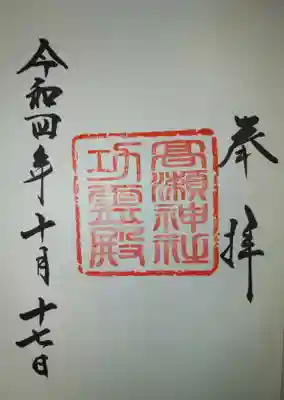 奉拝
高瀬神社
功霊殿
令和四年十月十七日